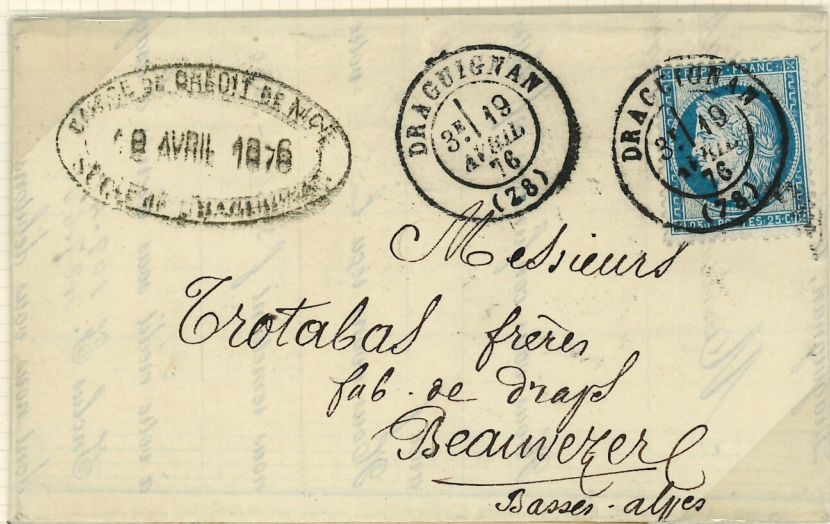 CAISSE DE CRÉDIT DE NICE
19 AVRIL 1876
DRAGUIGNAN
3E 19
AVRIL
76
(78)
DRAGUIGNAN
3E 19
AVRIL
76
(78)
FRANC
25 POSTES 25 C
Messieurs
Trotabas frères
fab. de draps
Beauvezer
Basses-alpes